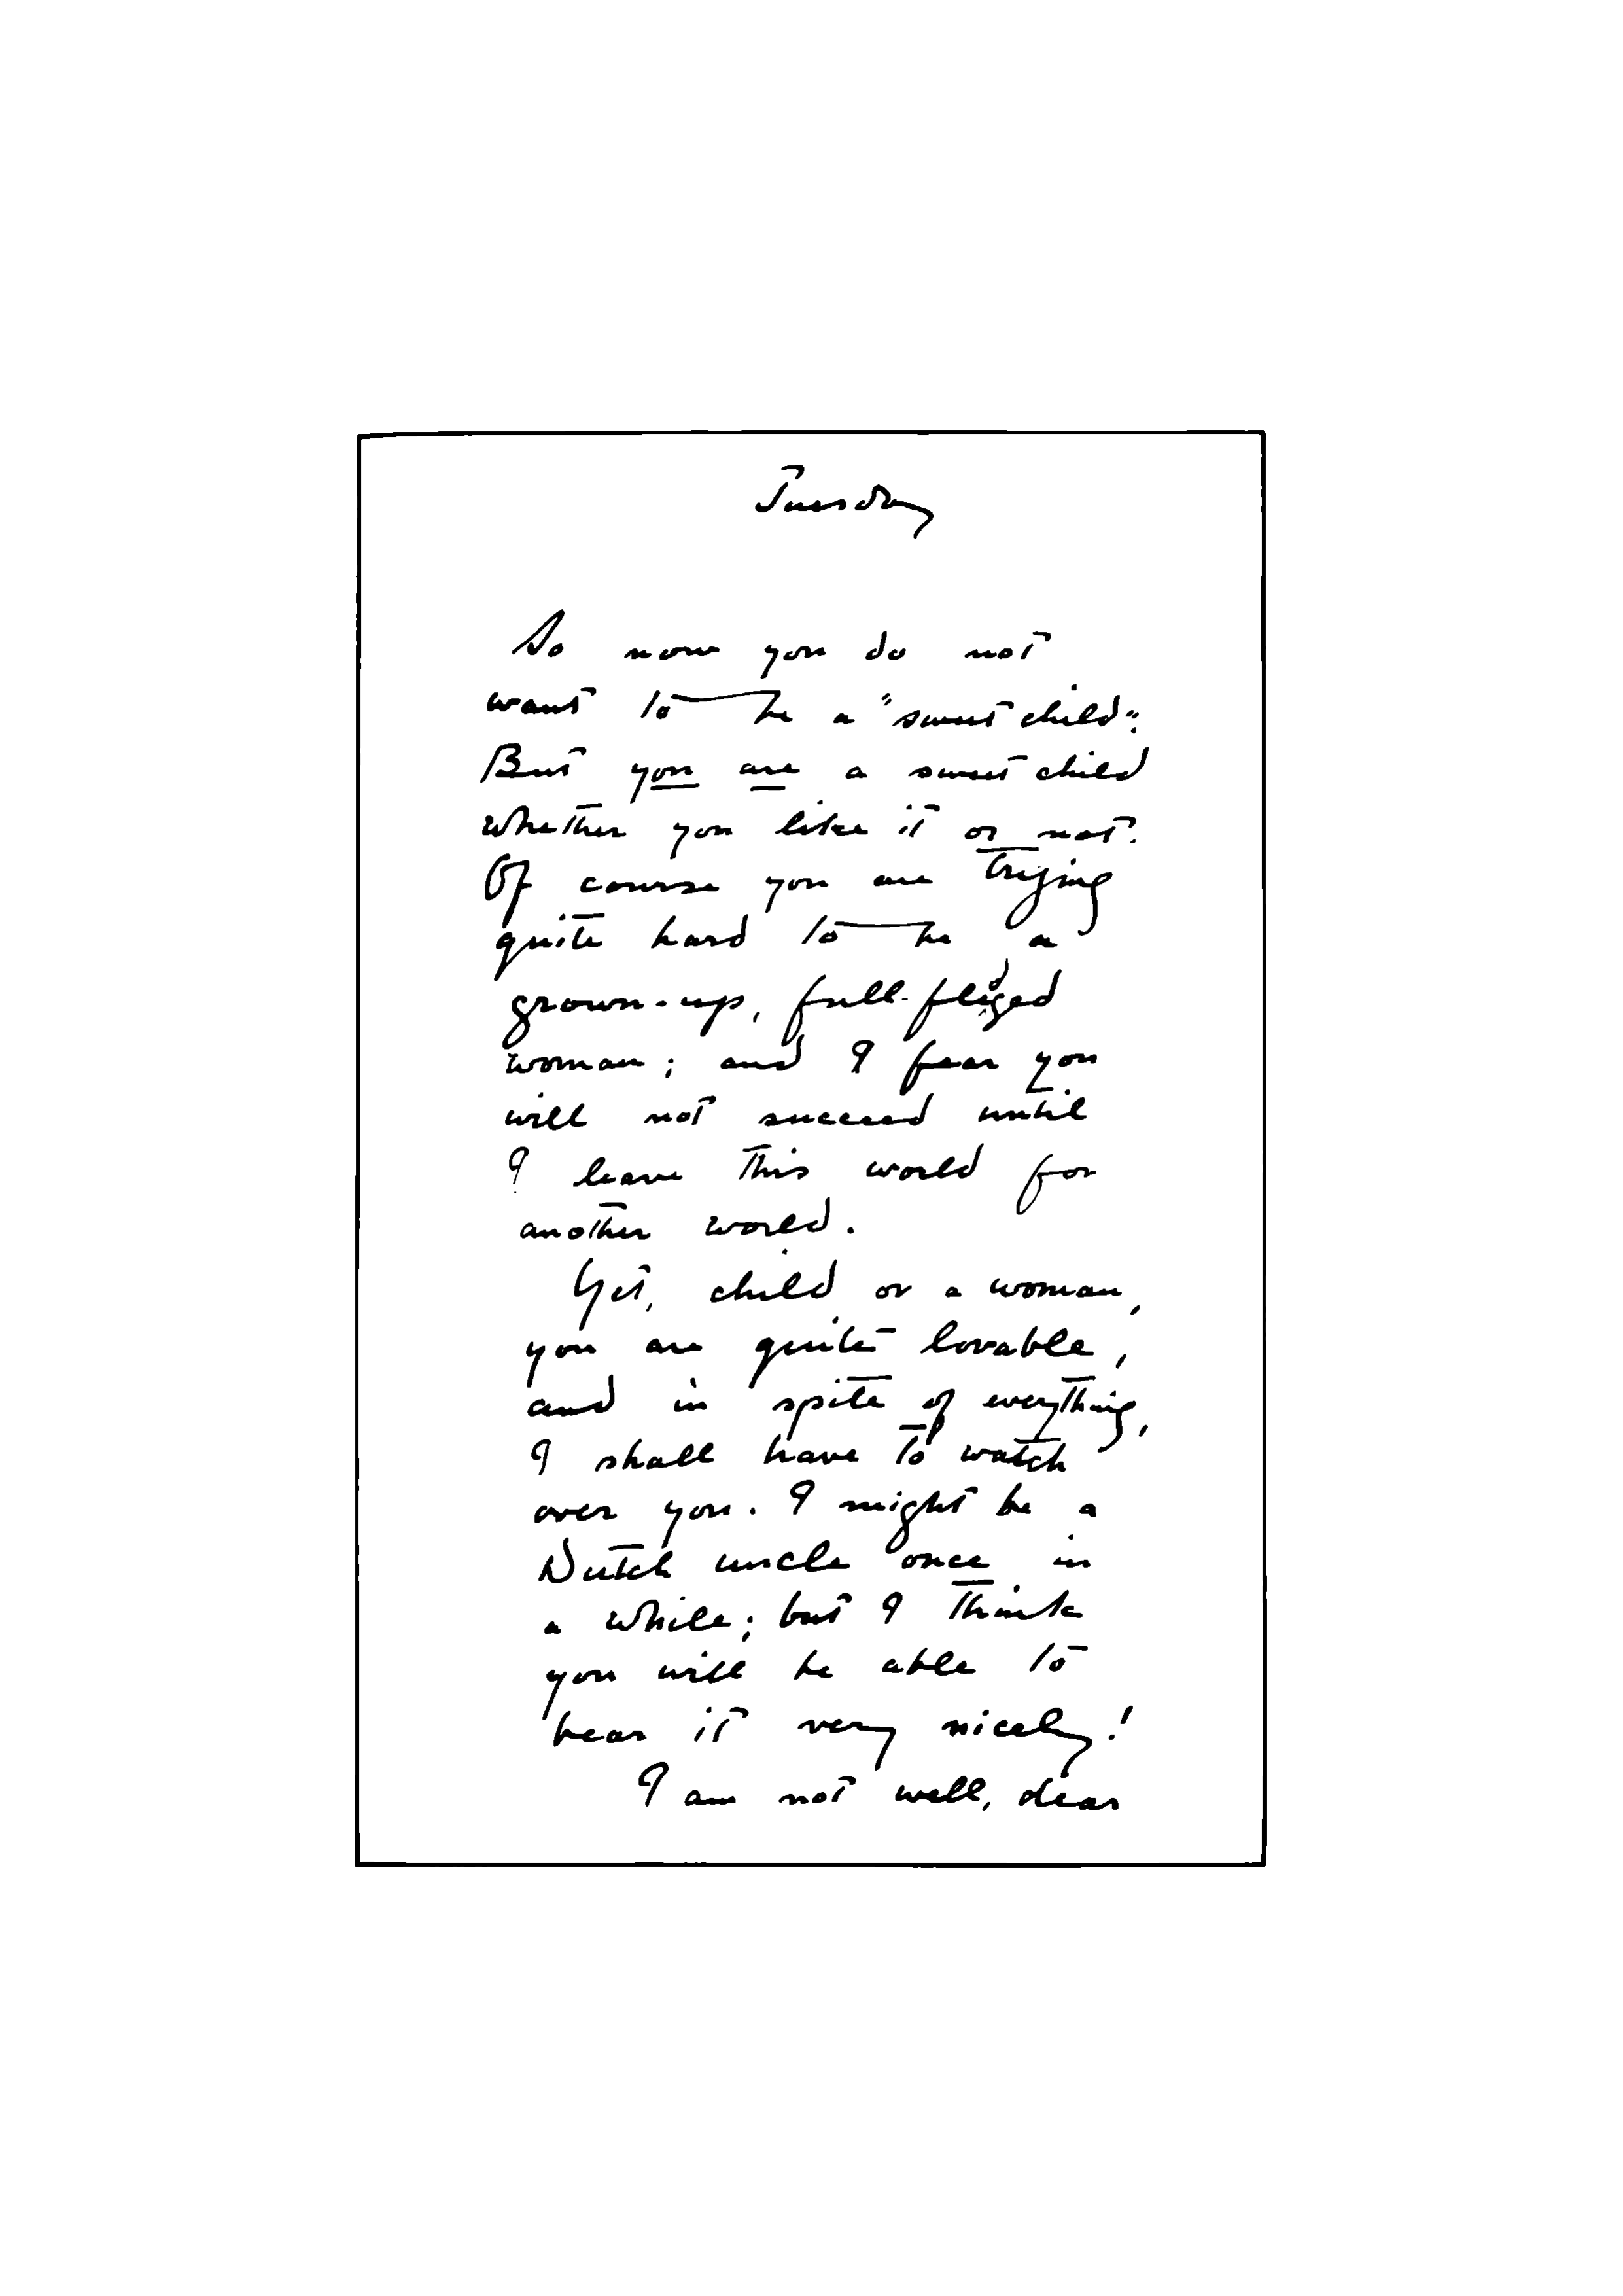 Tuesday
So now you do not
want to be a "sweet child".
But you are a sweet child
whether you like it or not.
Of course you are trying
quite hard to be a
grown-up, full-fledged
woman; and I fear you
will not succeed until
I leave this world for
another world.
Yet, child or a woman,
you are quite lovable,
and in spite of everything,
I shall have to watch
over you. I might be a
Dutch uncle once in
a while; but I think
you will be able to
bear it very nicely!
I am not well, dear